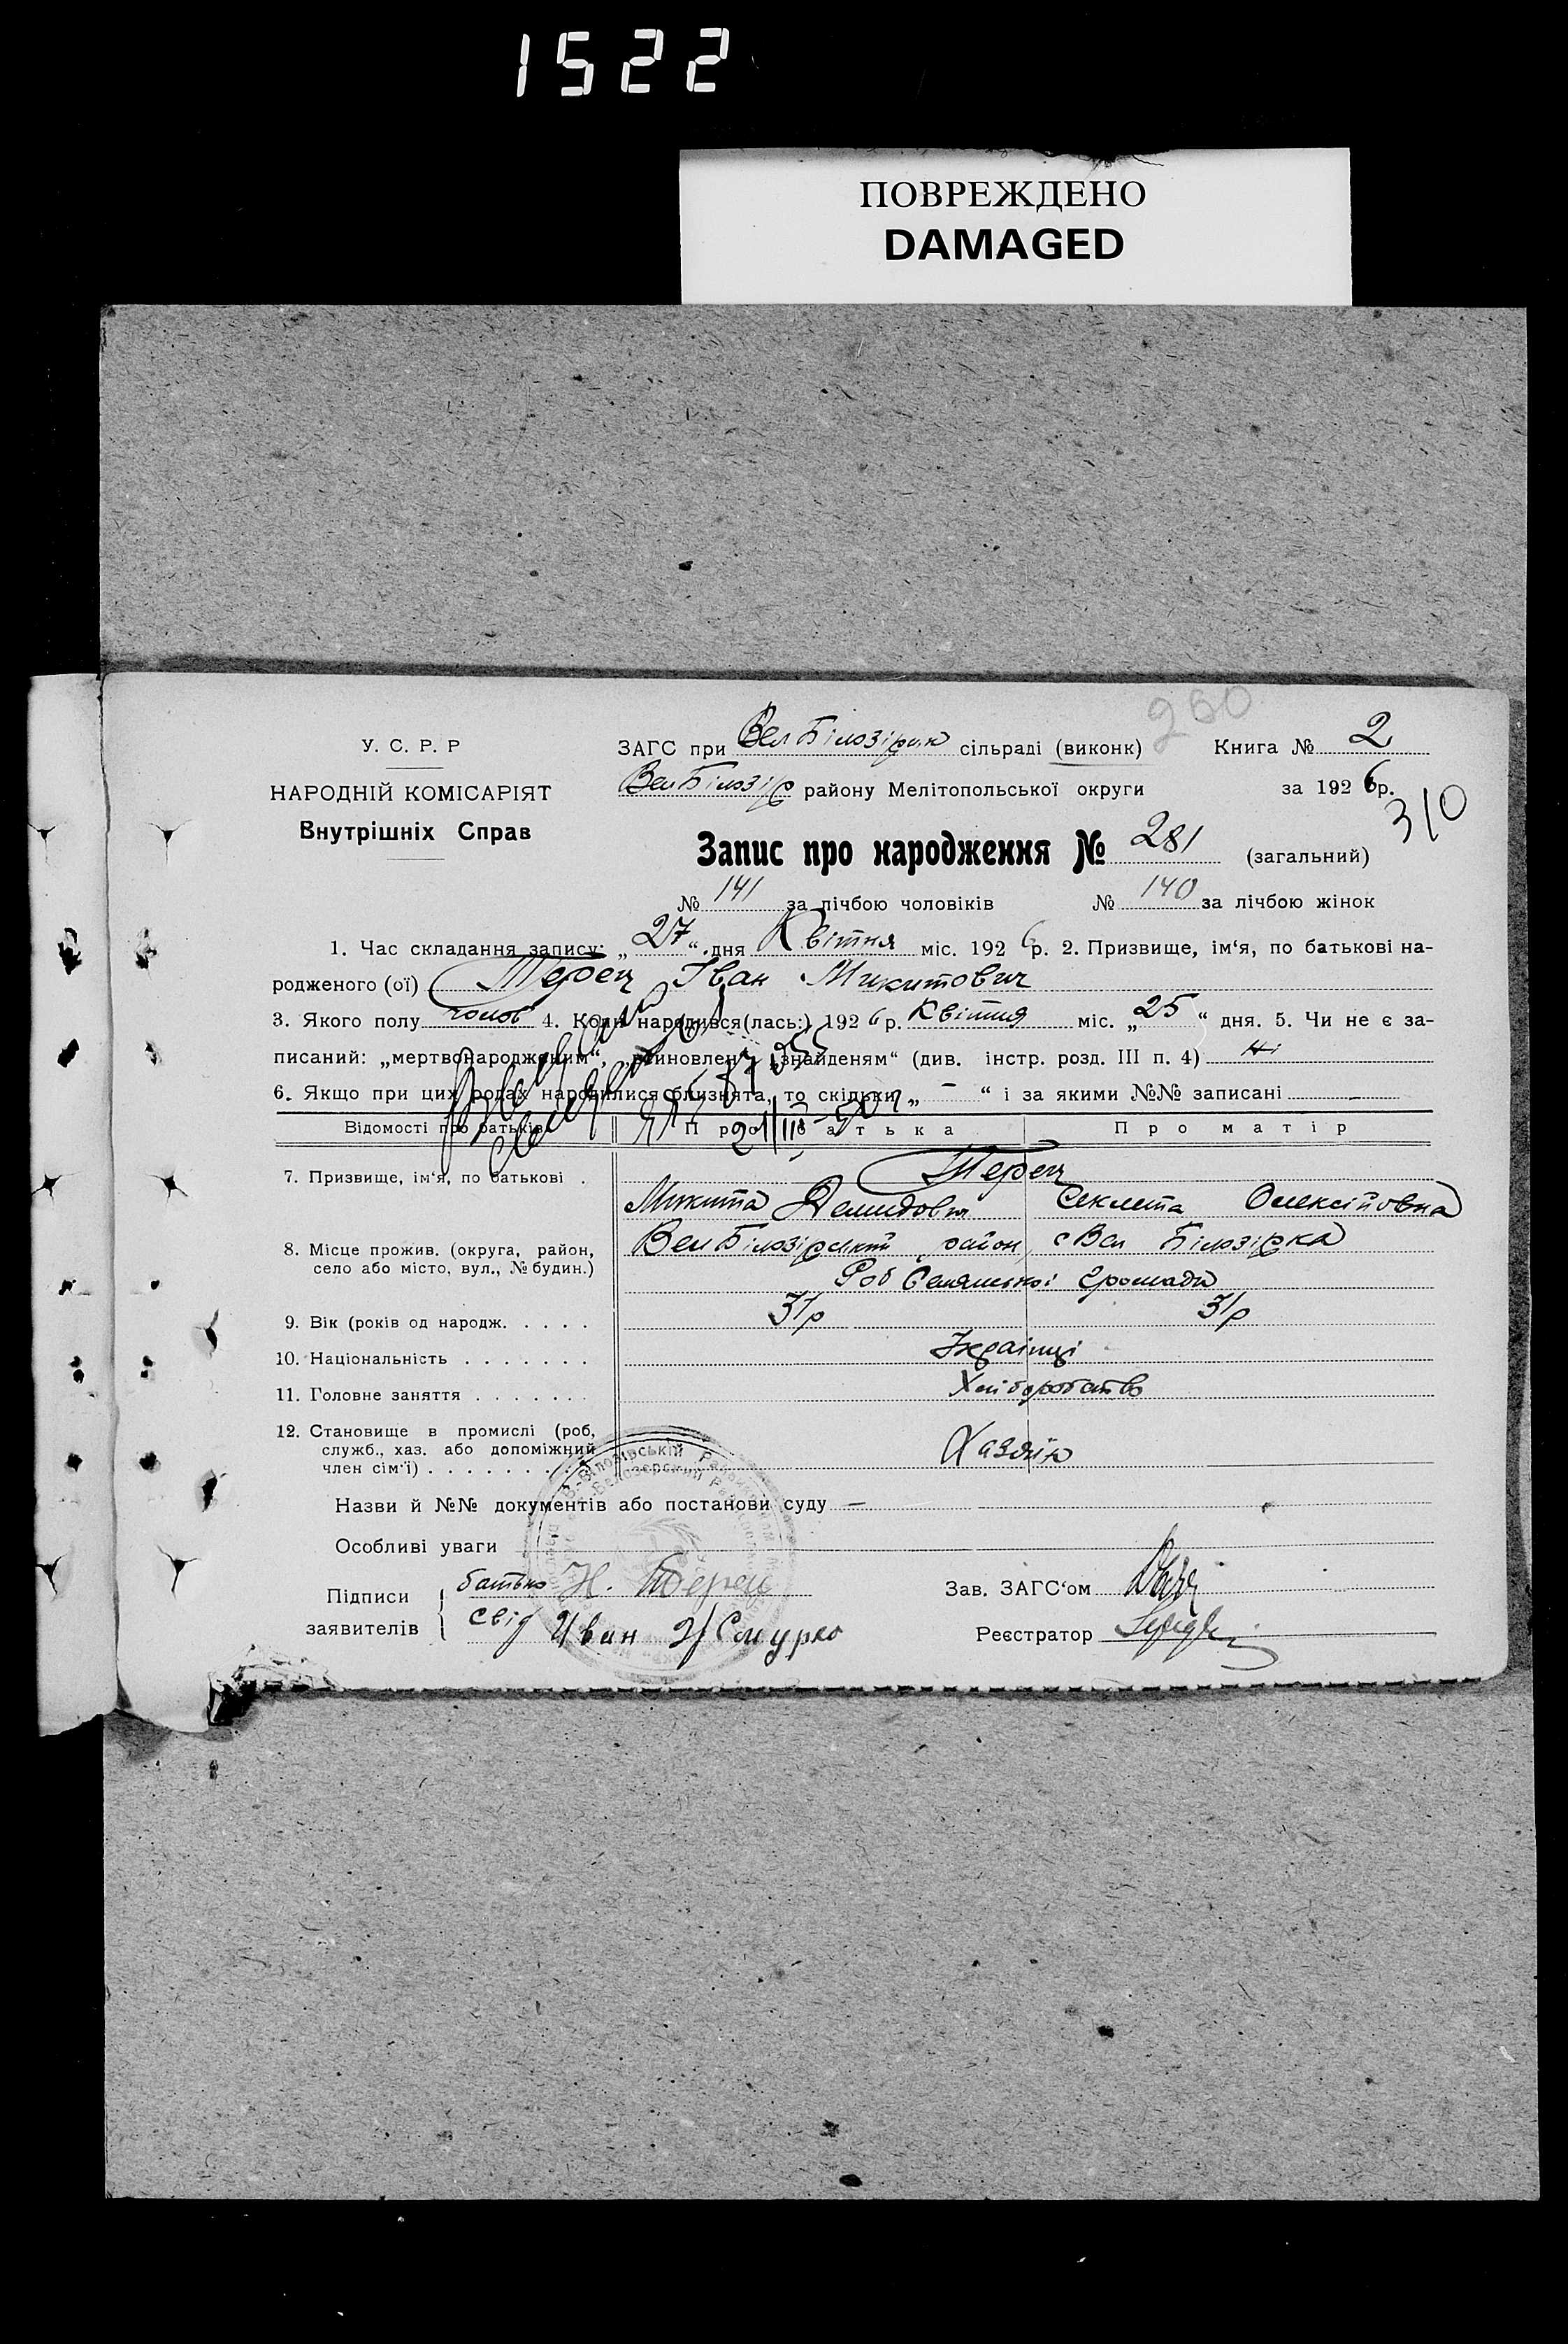 1522
ПОВРЕЖДЕНО
DAMAGED
260
У. С. Р. Р
НАРОДНІЙ КОМІСАРІЯТ
Внутрішніх Справ
ЗАГС при Вел Білозірск сільраді (виконк) Книга № 2
Вел Білозір району Мелітопольської округи за 1926р.
310
Запис про народження № 281 (загальний)
№ 141 за лічбою чоловіків № 140 за лічбою жінок
1. Час складання запису: „27“ дня Квітня міс. 1926р. 2. Призвище, ім‘я, по батькові на-
родженого (ої) Терец Іван Микитович
3. Якого полу чолов 4. Коли народився(лась:) 1926 р. Квітня міс. „25“ дня. 5. Чи не є за-
писаний: „мертвонародженим“, „знайденям“ (див. інстр. розд. III п. 4) Ні
6. Якщо при цих родах народилися близнята, то скільки „ – “ і за якими №№ записані
21/III
Відомості про батьків Про батька Про матір
7. Призвище, ім‘я, по батькові . Терец
Микита Демидович Секлета Олексіївна
8. Місце прожив. (округа, район, село або місто, вул., № будин.) Вел Білозірский район, с Вел Білозірка
Громади
9. Вік (років од народж. . . . . 31р 31р
10. Національність . . . . . . . Українці
11. Головне заняття . . . . . . . Хліборобство
12. Становище в промислі (роб, служб., хаз. або допоміжний член сім‘ї) . . . . . . . . . Хазяїн
Назви й №№ документів або постанови суду –
Особливі уваги
Підписи заявителів батько Н. Терец
свід Иван Смурко
Зав. ЗАГС‘ом
Реєстратор